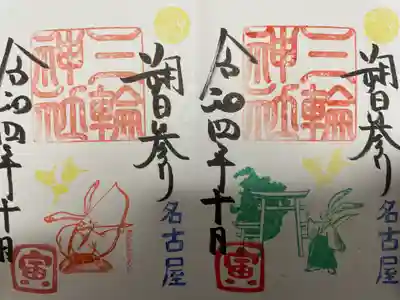 朔日参り
三輪
神社
名古屋
令和四年十月
寅
朔日参り
三輪
神社
名古屋
令和四年十月
寅